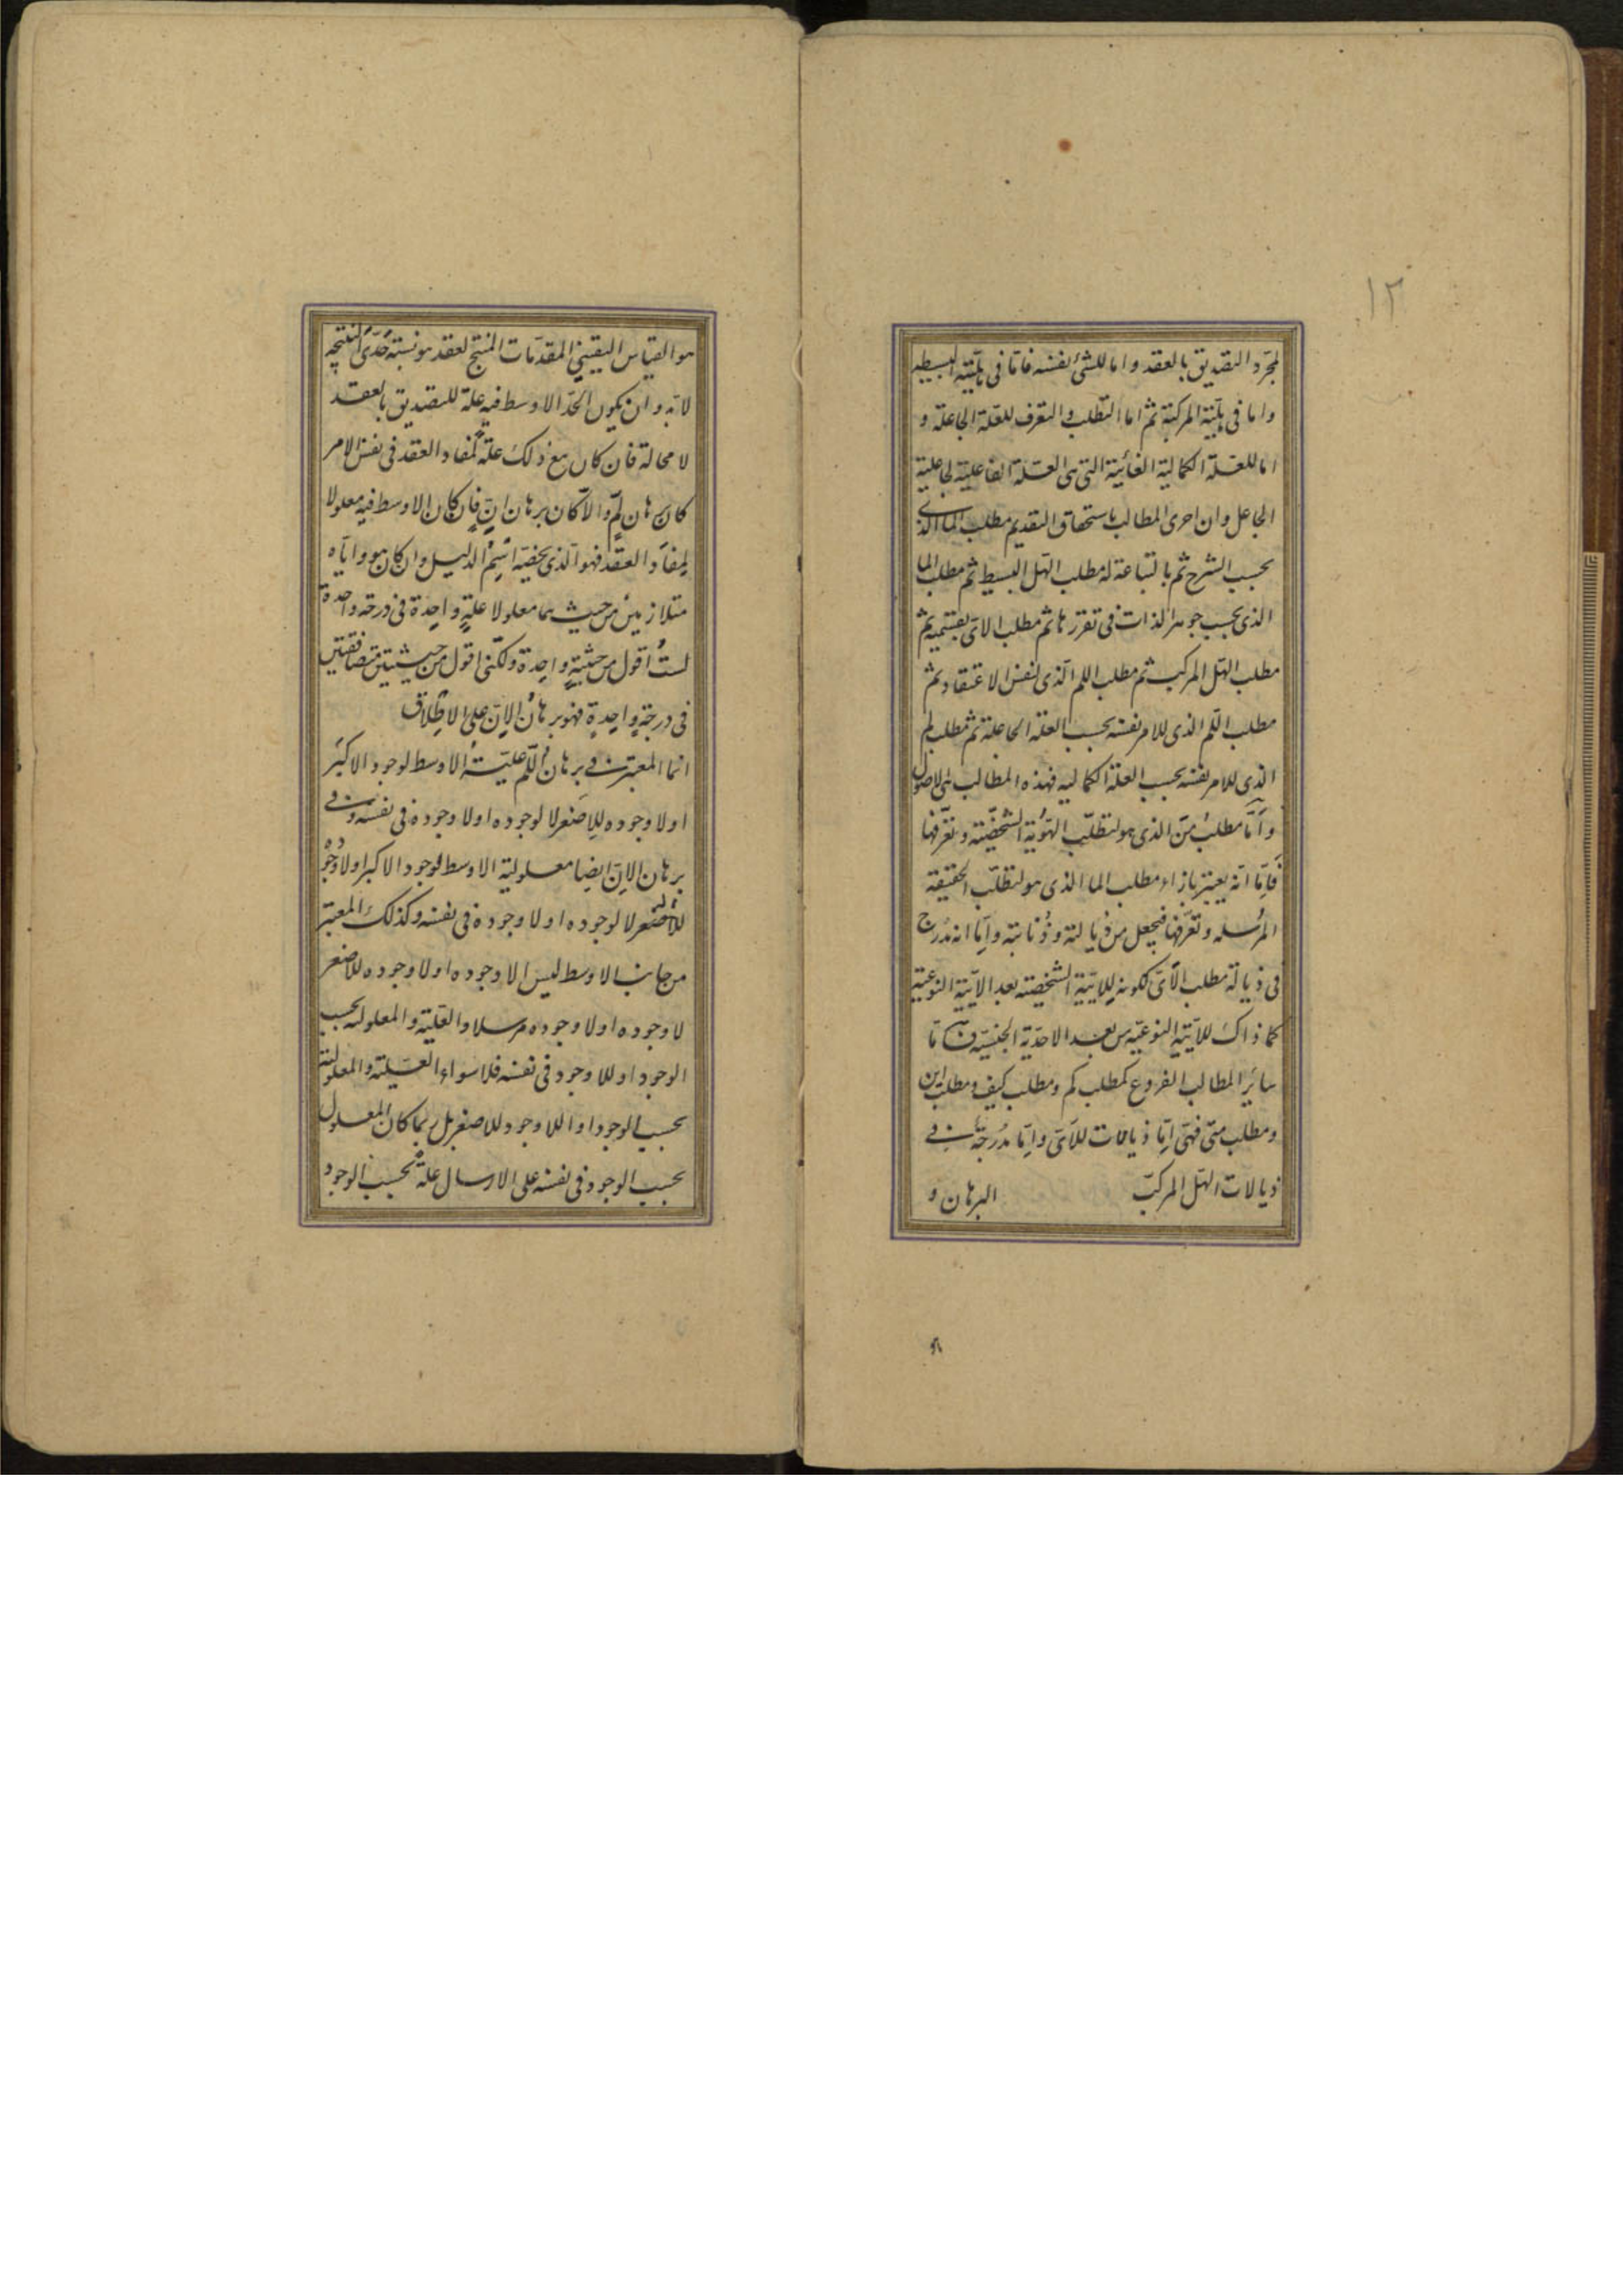 ١٢
لمجرّد التصديق بالعقد واما للشئ نفسه فامّا فى هليّته البسيطه
واما فى هليّته المركبة ثم اما التطلب والتعرف للعلّة الجاعلة و
اما للعلّة الكمالية الغائية التى هى العلّة الفاعلية لجاعلية
الجاعل وان احرى المطالب باستحقاق التقديم مطلب الما الذى
بحسب الشرح ثم بالتباعة له مطلب الهل البسيط ثم مطلب الما
الذى بحسب جوهر الذات فى تقررها ثم مطلب الاىّ بقسميه ثم
مطلب الهل المركب ثم مطلب اللم الذى لنفس الاعتقاد ثم
مطلب اللّم الذى للامر نفسه بحسب العلة الجاعلة ثم مطلب لم
الذى للامر نفسه بحسب العلة الكماليه فهذه المطالب هى الاصول
وامّا مطلب من الذى هو لتطلّب الهويّة الشخصيّة وتعرّفها
فامّا انه يعتبر بازاء مطلب الما الذى هو لتطلّب الحقيقة
المرسله وتعرّفها فيجعل من ذيالته وذنابته وامّا انه مدرج
فى ذيالة مطلب الاىّ لكونه للايّيّة الشخصيّة بعد الايّيّة النوعيّة
كما ذاك للايّيّة النوعيّه من بعد الاحدّية الجنسيّة فامّا
سائر المطالب الفروع كمطلب كم ومطلب كيف ومطلب اين
ومطلب متى فهى امّا ذيالات للاىّ وامّا مدرجة فى
ذيالات الهل المركبّ
البرهان و
هو القياس اليقينى المقدّمات المنتج لعقد هو نسبة حدّى النتيجة
لا بد وان يكون الحدّ الاوسط فيه علة للتصديق بالعقد
لا محالة فان كان مع ذلك علة لمفاد العقد فى نفس الامر
كان برهان لمٍّ والّا كان برهان انٍّ فان كان الاوسط فيه معلولا
لمفاد العقد فهو الذى يخصّه اسم الدليل وان كان هو واياه
متلازمين من حيث هما معلولا علةٍ واحدة فى درجة واحدة
لستُ اقول من حيثيةٍ واحدة ولكنى اقول من حيثيتين متصافقتين
فى درجةٍ واحدةٍ فهو برهان الانّ على الاطلاق
انما المعتبر فى برهان اللّم عليّة الاوسط لوجود الاكبر
او لا وجوده للاصغر لا لوجوده او لا وجوده فى نفسه وفى
برهان الانّ ايضا معلولية الاوسط لوجود الاكبر او لا وجوده
للأصغر لا لوجوده او لا وجوده فى نفسه وكذلك المعتبر
من جانب الاوسط ليس الا وجوده او لا وجوده للاصغر
لا وجوده او لا وجوده مرسلا والعليّة والمعلوليه بحسب
الوجود او للا وجود فى نفسه فلا سواء العلّية والمعلولية
بحسب الوجود او اللا وجود للاصغر بل ربما كان المعلول
بحسب الوجود فى نفسه على الارسال علةً بحسب الوجود